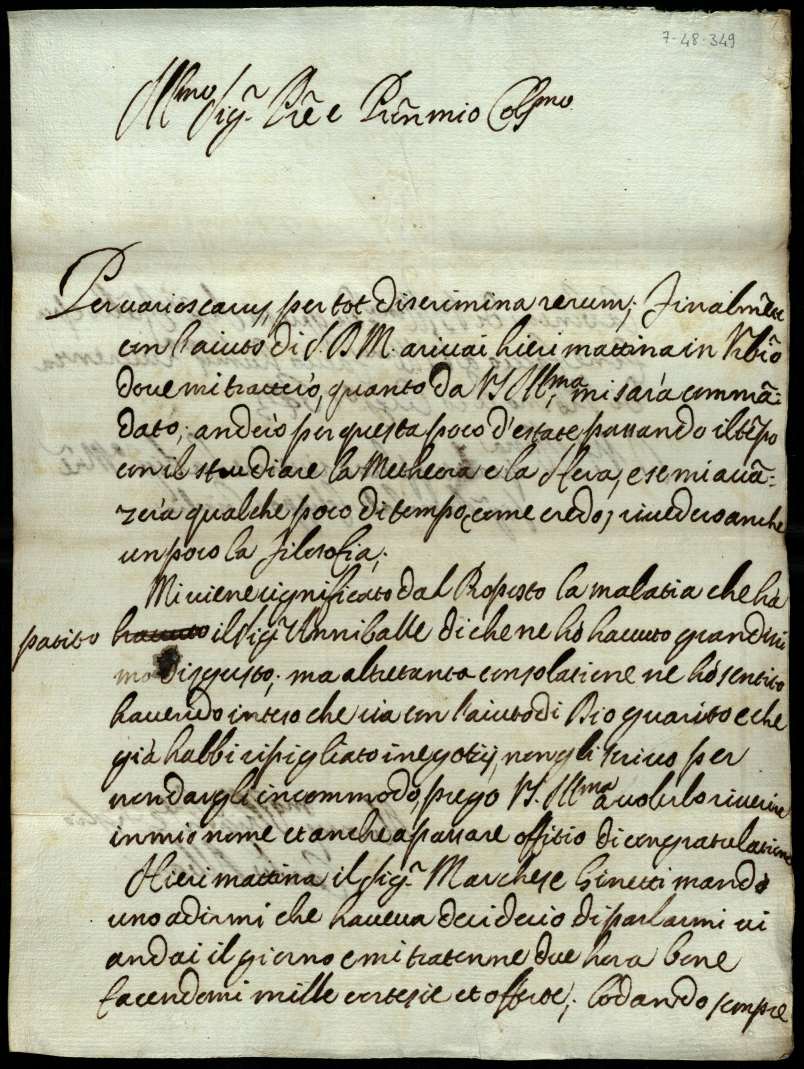 7-48-349
Ill.mo Sig.r P̃re e P̃ron mio Col.mo
Per varios casus, per tot discrimina rerum; finalm̃te
con l'aiuto di S.D.M. arivai hieri mattina in Urbio
dove mi tratterò, quanto da V.S. Ill.ma mi sarà commã:
dato; anderò per questa poco d'estate passando il tẽpo
con il studiare la Metheora e la sfera, e se mi avã=
zerà qualche poco di tempo, come credo, rivederò anche
un poco la filosofia;
Mi viene significato dal Proposto la malatia che hà
patito havuto il Sig.r Anniballe di che ne hò havuto grandissi
mo disgusto; ma altretanta consolatione ne hò sentito
havendo inteso che sia con l'aiuto di Dio guarito e che
già habbi ripigliato i negotij, non gli scrivo per
non dargli incommodo, prego V.S. Ill.ma a volerlo riverire
in mio nome et anche a passare offitio di congratulatione
Hieri mattina il Sig.r Marchese Ginetti mandò
uno a dirmi che haveva deciderio di parlarmi vi
andai il giorno e mi tratenne due hora bene
facendomi mille cortesie et offerte; lodando sempre